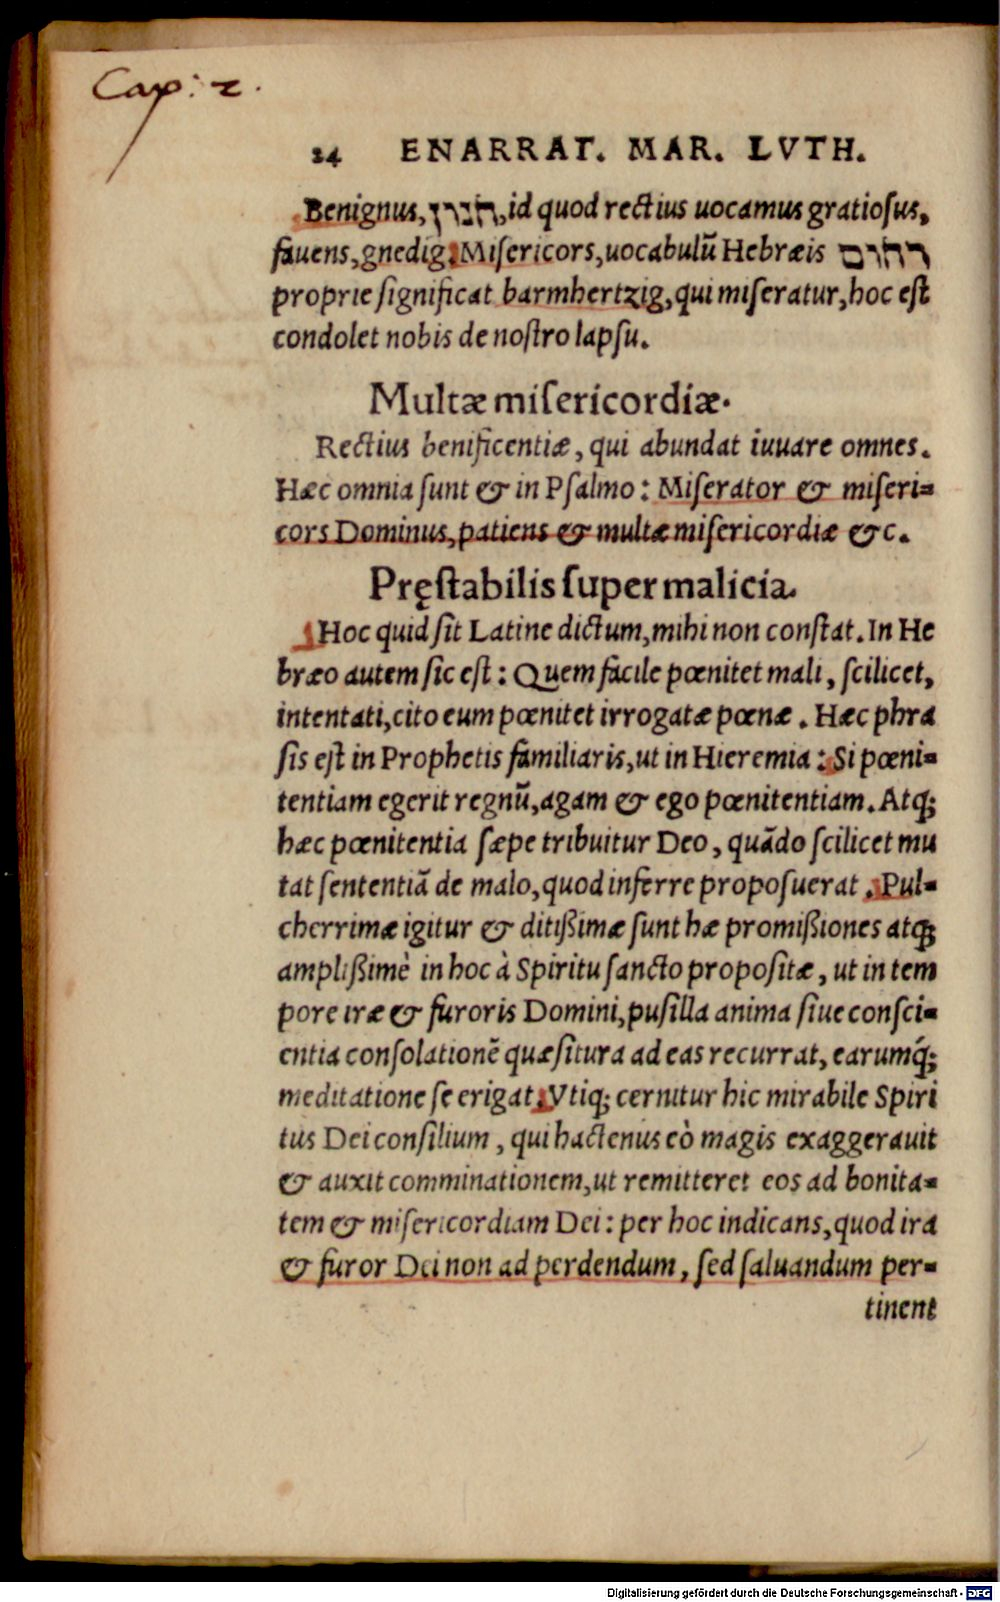 Cap: 2.
24 ENARRAT. MAR. LVTH.
Benignus, חנון, id quod rectius uocamus gratiosus,
fauens, gnedig. Misericors, uocabulũ Hebræis רחום
proprie significat barmhertzig, qui miseratur, hoc est
condolet nobis de nostro lapsu.
Multæ misericordiæ.
Rectius benificentiæ, qui abundat iuuare omnes.
Hæc omnia sunt & in Psalmo: Miserator & miseri-
cors Dominus, patiens & multæ misericordiæ &c.
Pręstabilis super malicia.
Hoc quid sit Latine dictum, mihi non constat. In He
bræo autem sic est: Quem facile pœnitet mali, scilicet,
intentati, cito eum pœnitet irrogatæ pœnæ. Hæc phra
sis est in Prophetis familiaris, ut in Hieremia: Si pœni-
tentiam egerit regnũ, agam & ego pœnitentiam. Atq;
hæc pœnitentia sæpe tribuitur Deo, quãdo scilicet mu
tat sententiã de malo, quod inferre proposuerat. Pul-
cherrimæ igitur & ditißimæ sunt hæ promißiones atq;
amplißimè in hoc à Spiritu sancto propositæ, ut in tem
pore iræ & furoris Domini, pusilla anima siue consci-
entia consolationẽ quæsitura ad eas recurrat, earumq́;
meditatione se erigat. Vtiq; cernitur hic mirabile Spiri
tus Dei consilium, qui hactenus eò magis exaggerauit
& auxit comminationem, ut remitteret eos ad bonita-
tem & misericordiam Dei: per hoc indicans, quod ira
& furor Dei non ad perdendum, sed saluandum per-
tinent
Digitalisierung gefördert durch die Deutsche Forschungsgemeinschaft - DFG